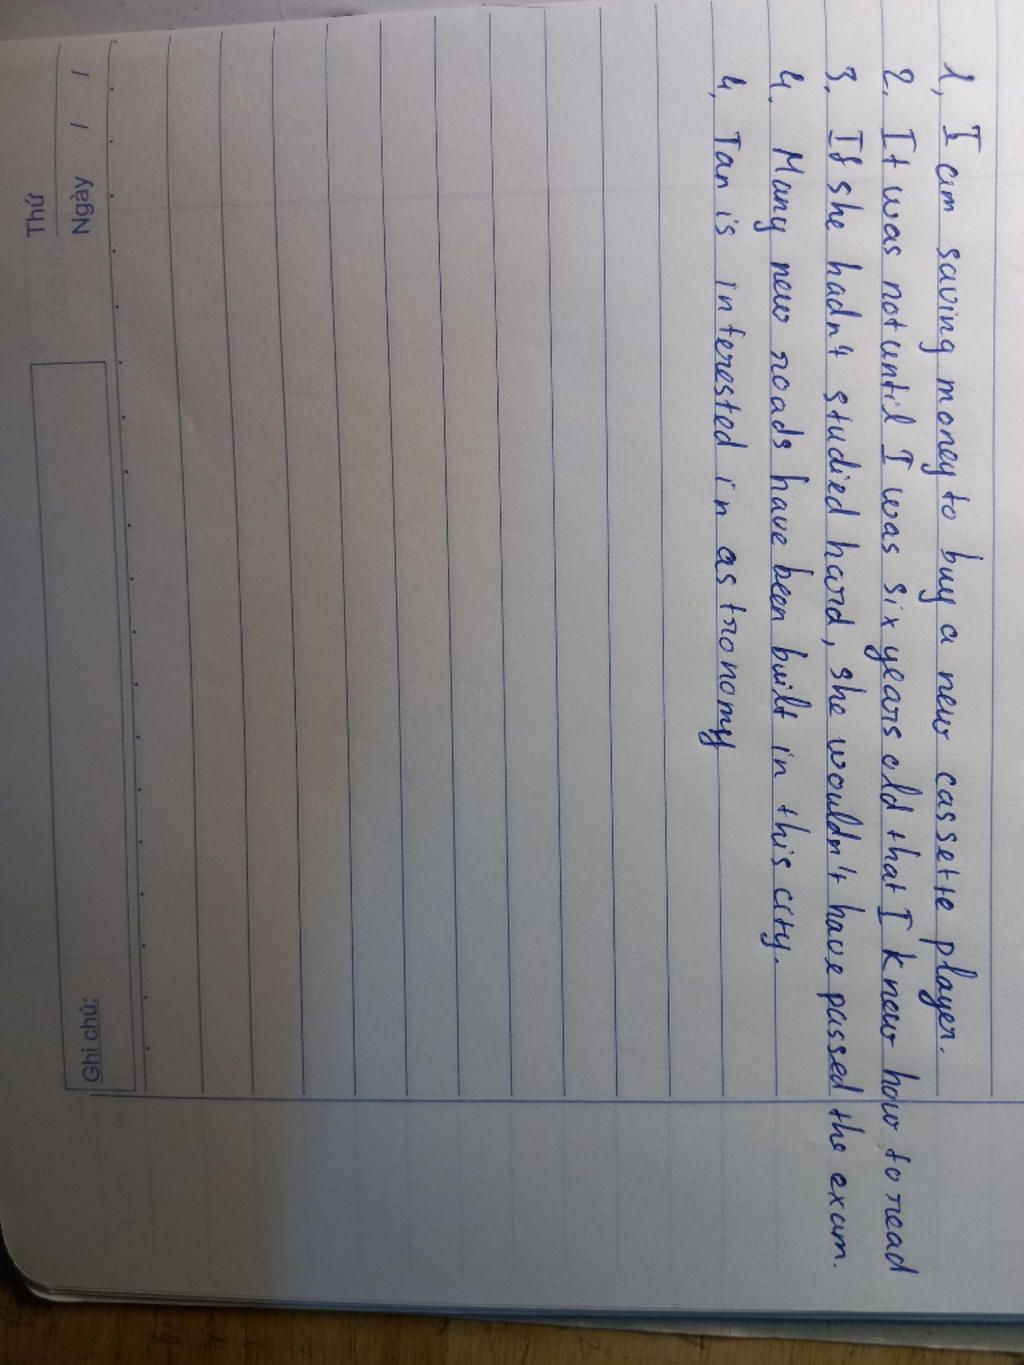 1, I am saving money to buy a new cassette player.
2. It was not until I was six years old that I knew how to read
3. If she hadn't studied hard, she wouldn't have passed the exam.
4. Many new roads have been built in this city.
4, Tan is interested in astronomy
Thứ
Ngày / /
Ghi chú: